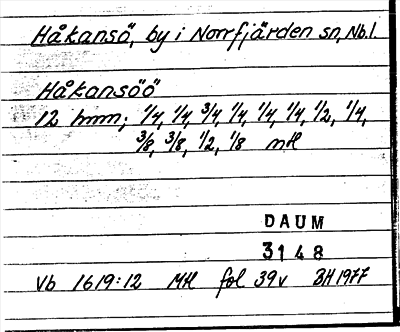 Håkansö, by i Norrfjärden sn, Nb.l.
Håkansöö
12 hmn; 1/4, 1/4, 3/4, 1/4, 1/4, 1/4, 1/2, 1/4,
3/8, 3/8, 1/2, 1/8 mtl
DAUM
3148
Vb 1619:12 Mtl fol 39v BH 1977